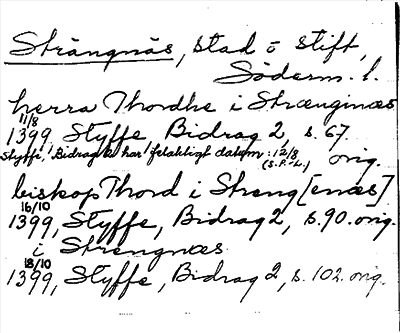 Strängnäs, stad o stift,
Söderm. l.
herra Thordhe i Strænginæs
11/8
1399, Styffe, Bidrag 2, s. 67.
Styffe, Bidrag 2 har felaktigt datum: 12/8 orig.
(S.F.L.)
biskop Thord i Streng[enæs]
16/10
1399, Styffe, Bidrag 2, s. 90. orig.
i Strengnæs
18/10
1399, Styffe, Bidrag 2, s. 102. orig.